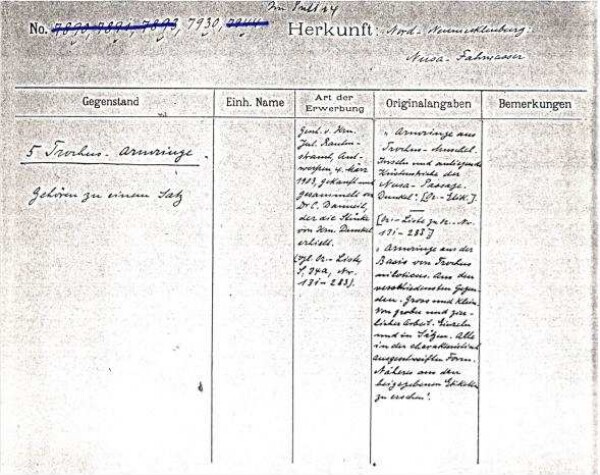 Im Pult 14
No. 7890-7891-7893, 7930, 7944 Herkunft: Nord-Neumecklenburg.
Nusa-Fahrwasser
Gegenstand Einh. Name Art der Erwerbung Originalangaben Bemerkungen
5 Trochus-Armringe.
Gehören zu einem Satz
Gesch. v. Hrn.
Jul. Rauten-
strauch, Ant-
werpen, 4. März
1903, gekauft und
gesammelt von
Dr. C. Danneil,
der die Stücke
von Hrn. Dunkel
erhielt.
(vgl. Or.-Liste
S. 24a, No.
181-283).
"Armringe aus
Trochus-Muschel.
Inseln und anliegende
Küstenstriche der
Nusa-Passage.
Dunkel". [Or.-Etik.]
[Or.-Liste zu Or.-No.
181-283]
"Armringe aus der
Basis von Trochus
niloticus. Aus den
verschiedensten Gegen-
den. Gross und klein.
Von grober und zier-
licher Arbeit. Einzeln
und in Sätzen. Alle
in der charakteristisch
ausgeschweiften Form.
Näheres aus den
beigegebenen Etiketten
zu ersehen".